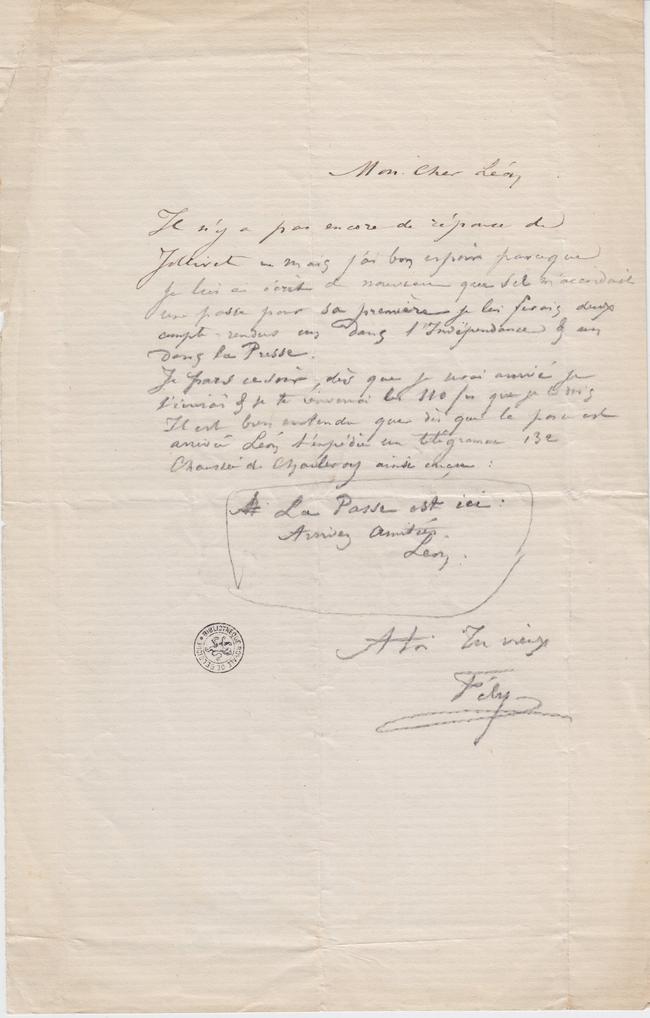 Mon Cher Léon
Il n'y a pas encore de réponse de
mais j'ai bon espoir parceque
je lui ai écrit de nouveau que s'il m'accordait
une passe pour sa première je lui ferais deux
compte-rendus un Dans l'Indépendance & un
Dans la Presse.
Je pars ce soir, dès que je serai arrivé je
t'écrirai & je te renverrai les 110 frs que je te dois
Il est bien entendu que dès que la passe est
arrivée Léon t'expédie un télégramme 132
Chaussée de Charleroy ainsi conçu :
La Passe est ici :
Arrivez amitiés.
Léon.
A toi Ton vieux
Fély
BIBLIOTHÈQUE ROYALE DE BELGIQUE